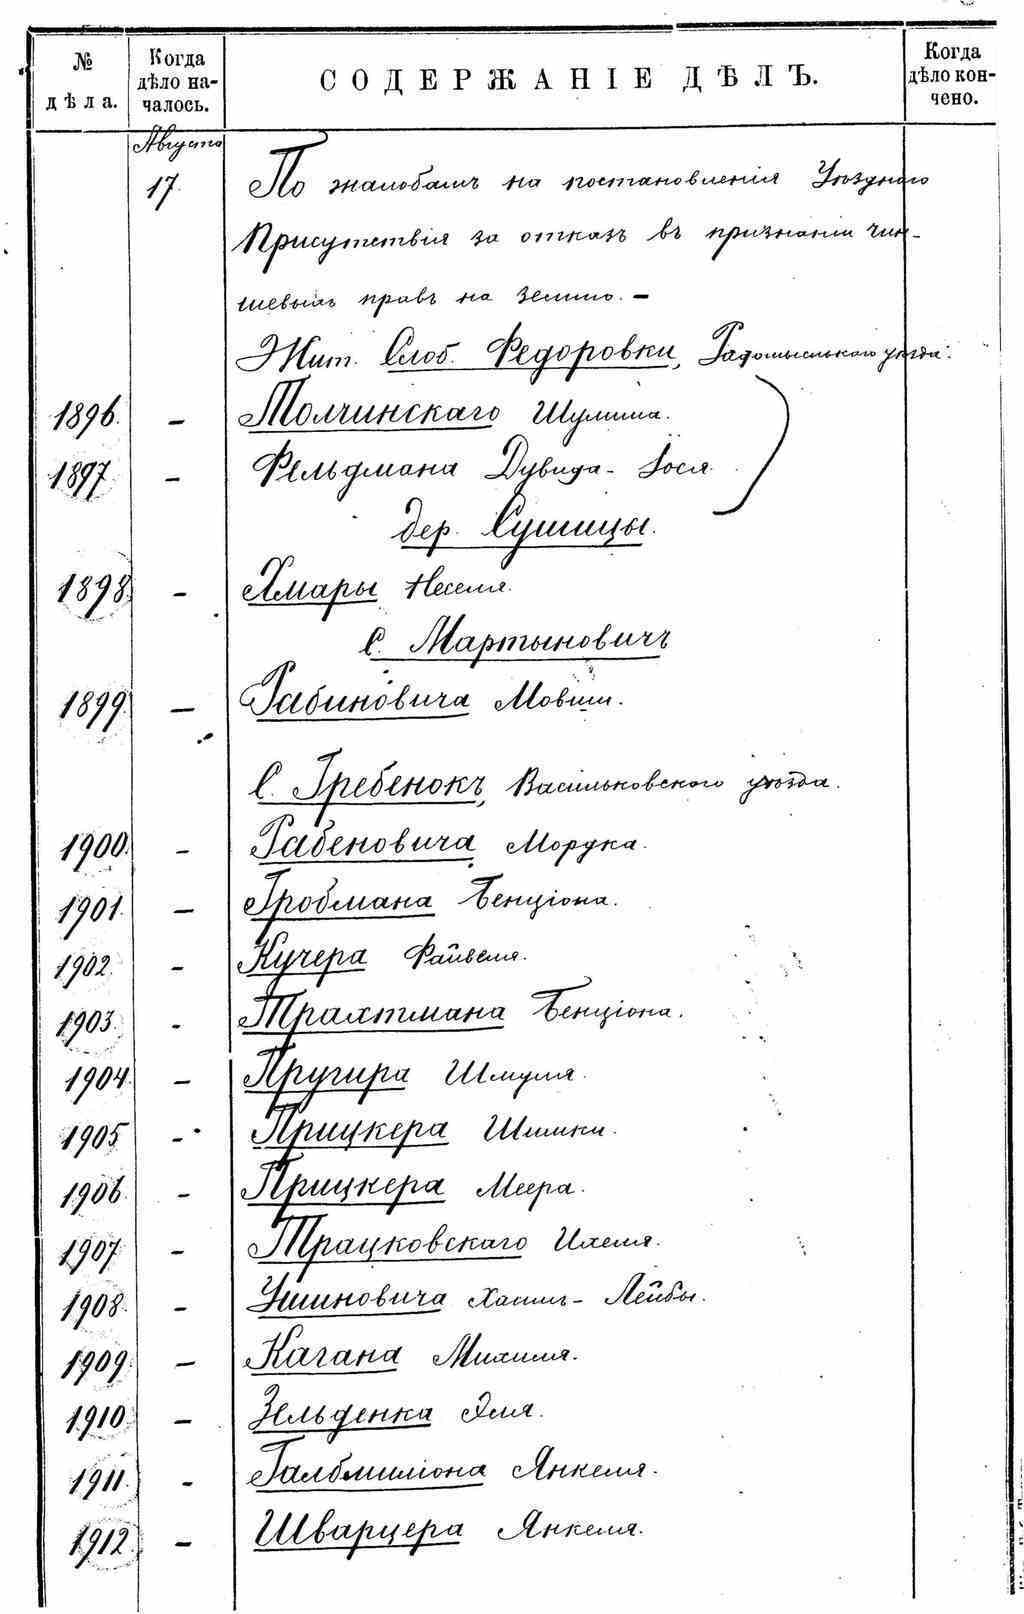 № дѣла. Когда дѣло началось. СОДЕРЖАНІЕ ДѢЛЪ. Когда дѣло кончено.
Августа
17. По жалобамъ на постановленія Уѣзднаго
Присутствія за отказъ въ признаніи чин-
шевыхъ правъ на землю. —
Жит. Слоб. Федоровки, Радомысльскаго уѣзда:
1896. – Толчинскаго Шулима.
1897. – Фельдмана Дувида-Іося.
дер. Сушицы.
1898. – Хмары Неселя.
С. Мартыновичъ
1899. – Рабиновича Мовши.
С. Гребенокъ, Васильковскаго уѣзда.
1900. – Рабеновича Мордка.
1901. – Гробмана Бенціона.
1902. – Кучера Файвеля.
1903. – Трахтмана Бенціона.
1904. – Пругира Шмуля.
1905. – Прицкера Шлиомки.
1906. – Прицкера Меера.
1907. – Трацковскаго Ихеля.
1908. – Ушиновича Хаимъ-Лейбы.
1909. – Кагана Михиля.
1910. – Зельденка Эля.
1911. – Галбмиліона Янкеля.
1912. – Шварцера Янкеля.